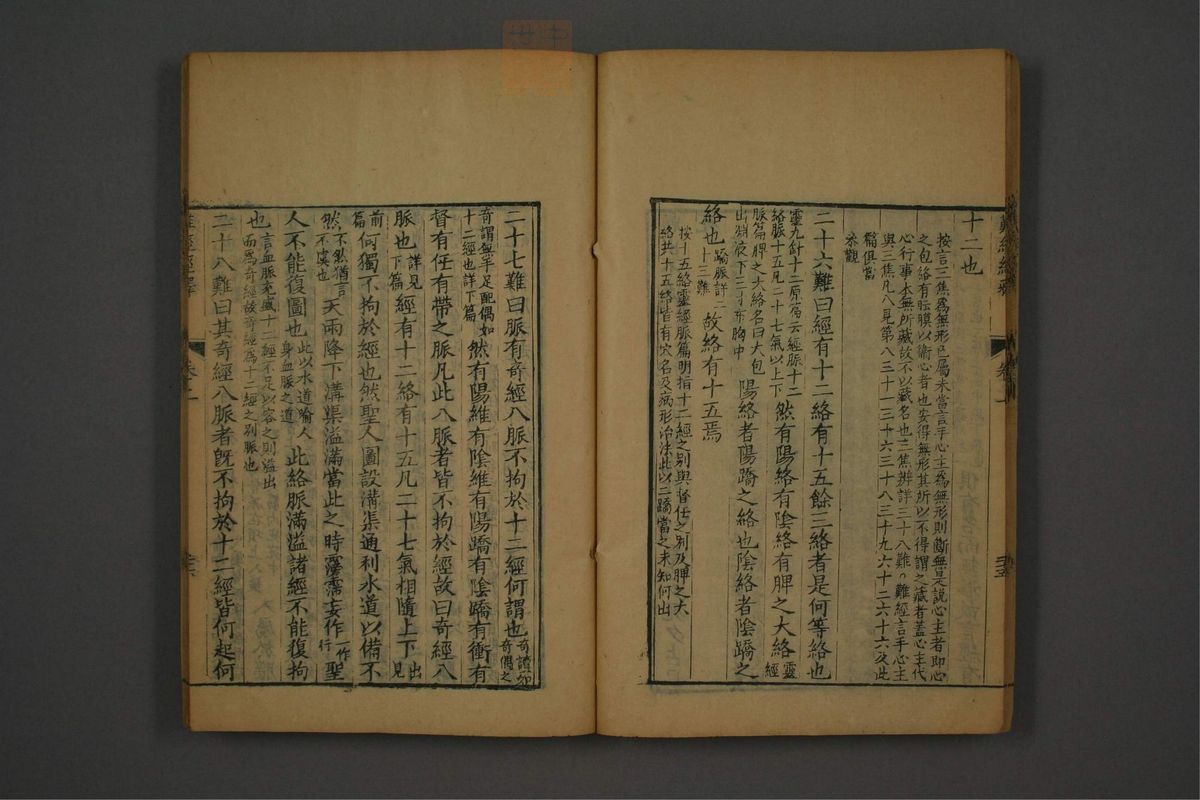 十二也
按言三焦爲無形已屬未當言手心主爲無形則斷無是說心主者即心
之包絡有脂膜以衛心者也安得無形其所以不得謂之藏者蓋心主代
心行事本無所藏故不以藏名也三焦辨詳三十八難○難經言手心主
與三焦凡八見第八三十一三十六三十八三十九六十二六十六及此
篇俱當
參觀
二十六難曰經有十二絡有十五餘三絡者是何等絡也
靈九針十二原篇云經脈十二
絡脈十五凡二十七氣以上下
然有陽絡有陰絡有脾之大絡
靈經
脈篇脾之大絡名曰大包
出淵液下三寸布胸中
陽絡者陽蹻之絡也陰絡者陰蹻之
絡也
蹻脈詳二
十三難
故絡有十五焉
按十五絡靈經脈篇明指十二經之別與督任之別及脾之大
絡共十五絡皆有穴名及病形治法此以二蹻當之未知何出
二十七難曰脈有奇經八脈不拘於十二經何謂也
奇讀如
奇偶之
奇謂無手足配偶如
十二經也詳下篇
然有陽維有陰維有陽蹻有陰蹻有衝有
督有任有帶之脈凡此八脈者皆不拘於經故曰奇經八
脈也
詳見
下篇
經有十二絡有十五凡二十七氣相隨上下
出
見
前
篇
何獨不拘於經也然聖人圖設溝渠通利水道以備不
然
不然猶言
不虞也
天雨降下溝渠溢滿當此之時霶霈妄作
一作
行
聖
人不能復圖也
此以水道喻人
身血脈之道
此絡脈滿溢諸經不能復拘
也
言血脈充盛十二經不足以容之則溢出
而爲奇經故奇經爲十二經之別脈也
二十八難曰其奇經八脈者既不拘於十二經皆何起何
難經經釋
卷上